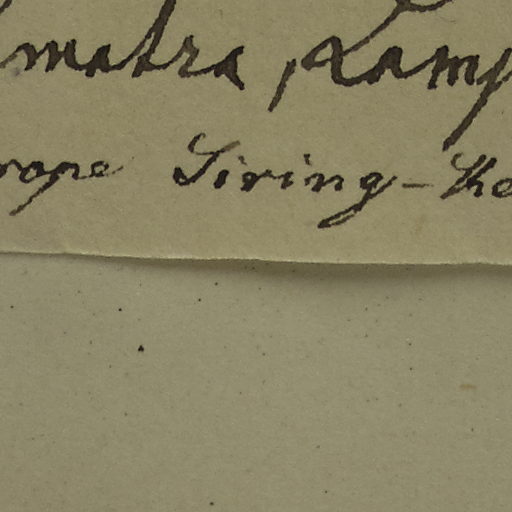 umatra, Lamp
rope Siring-Ke